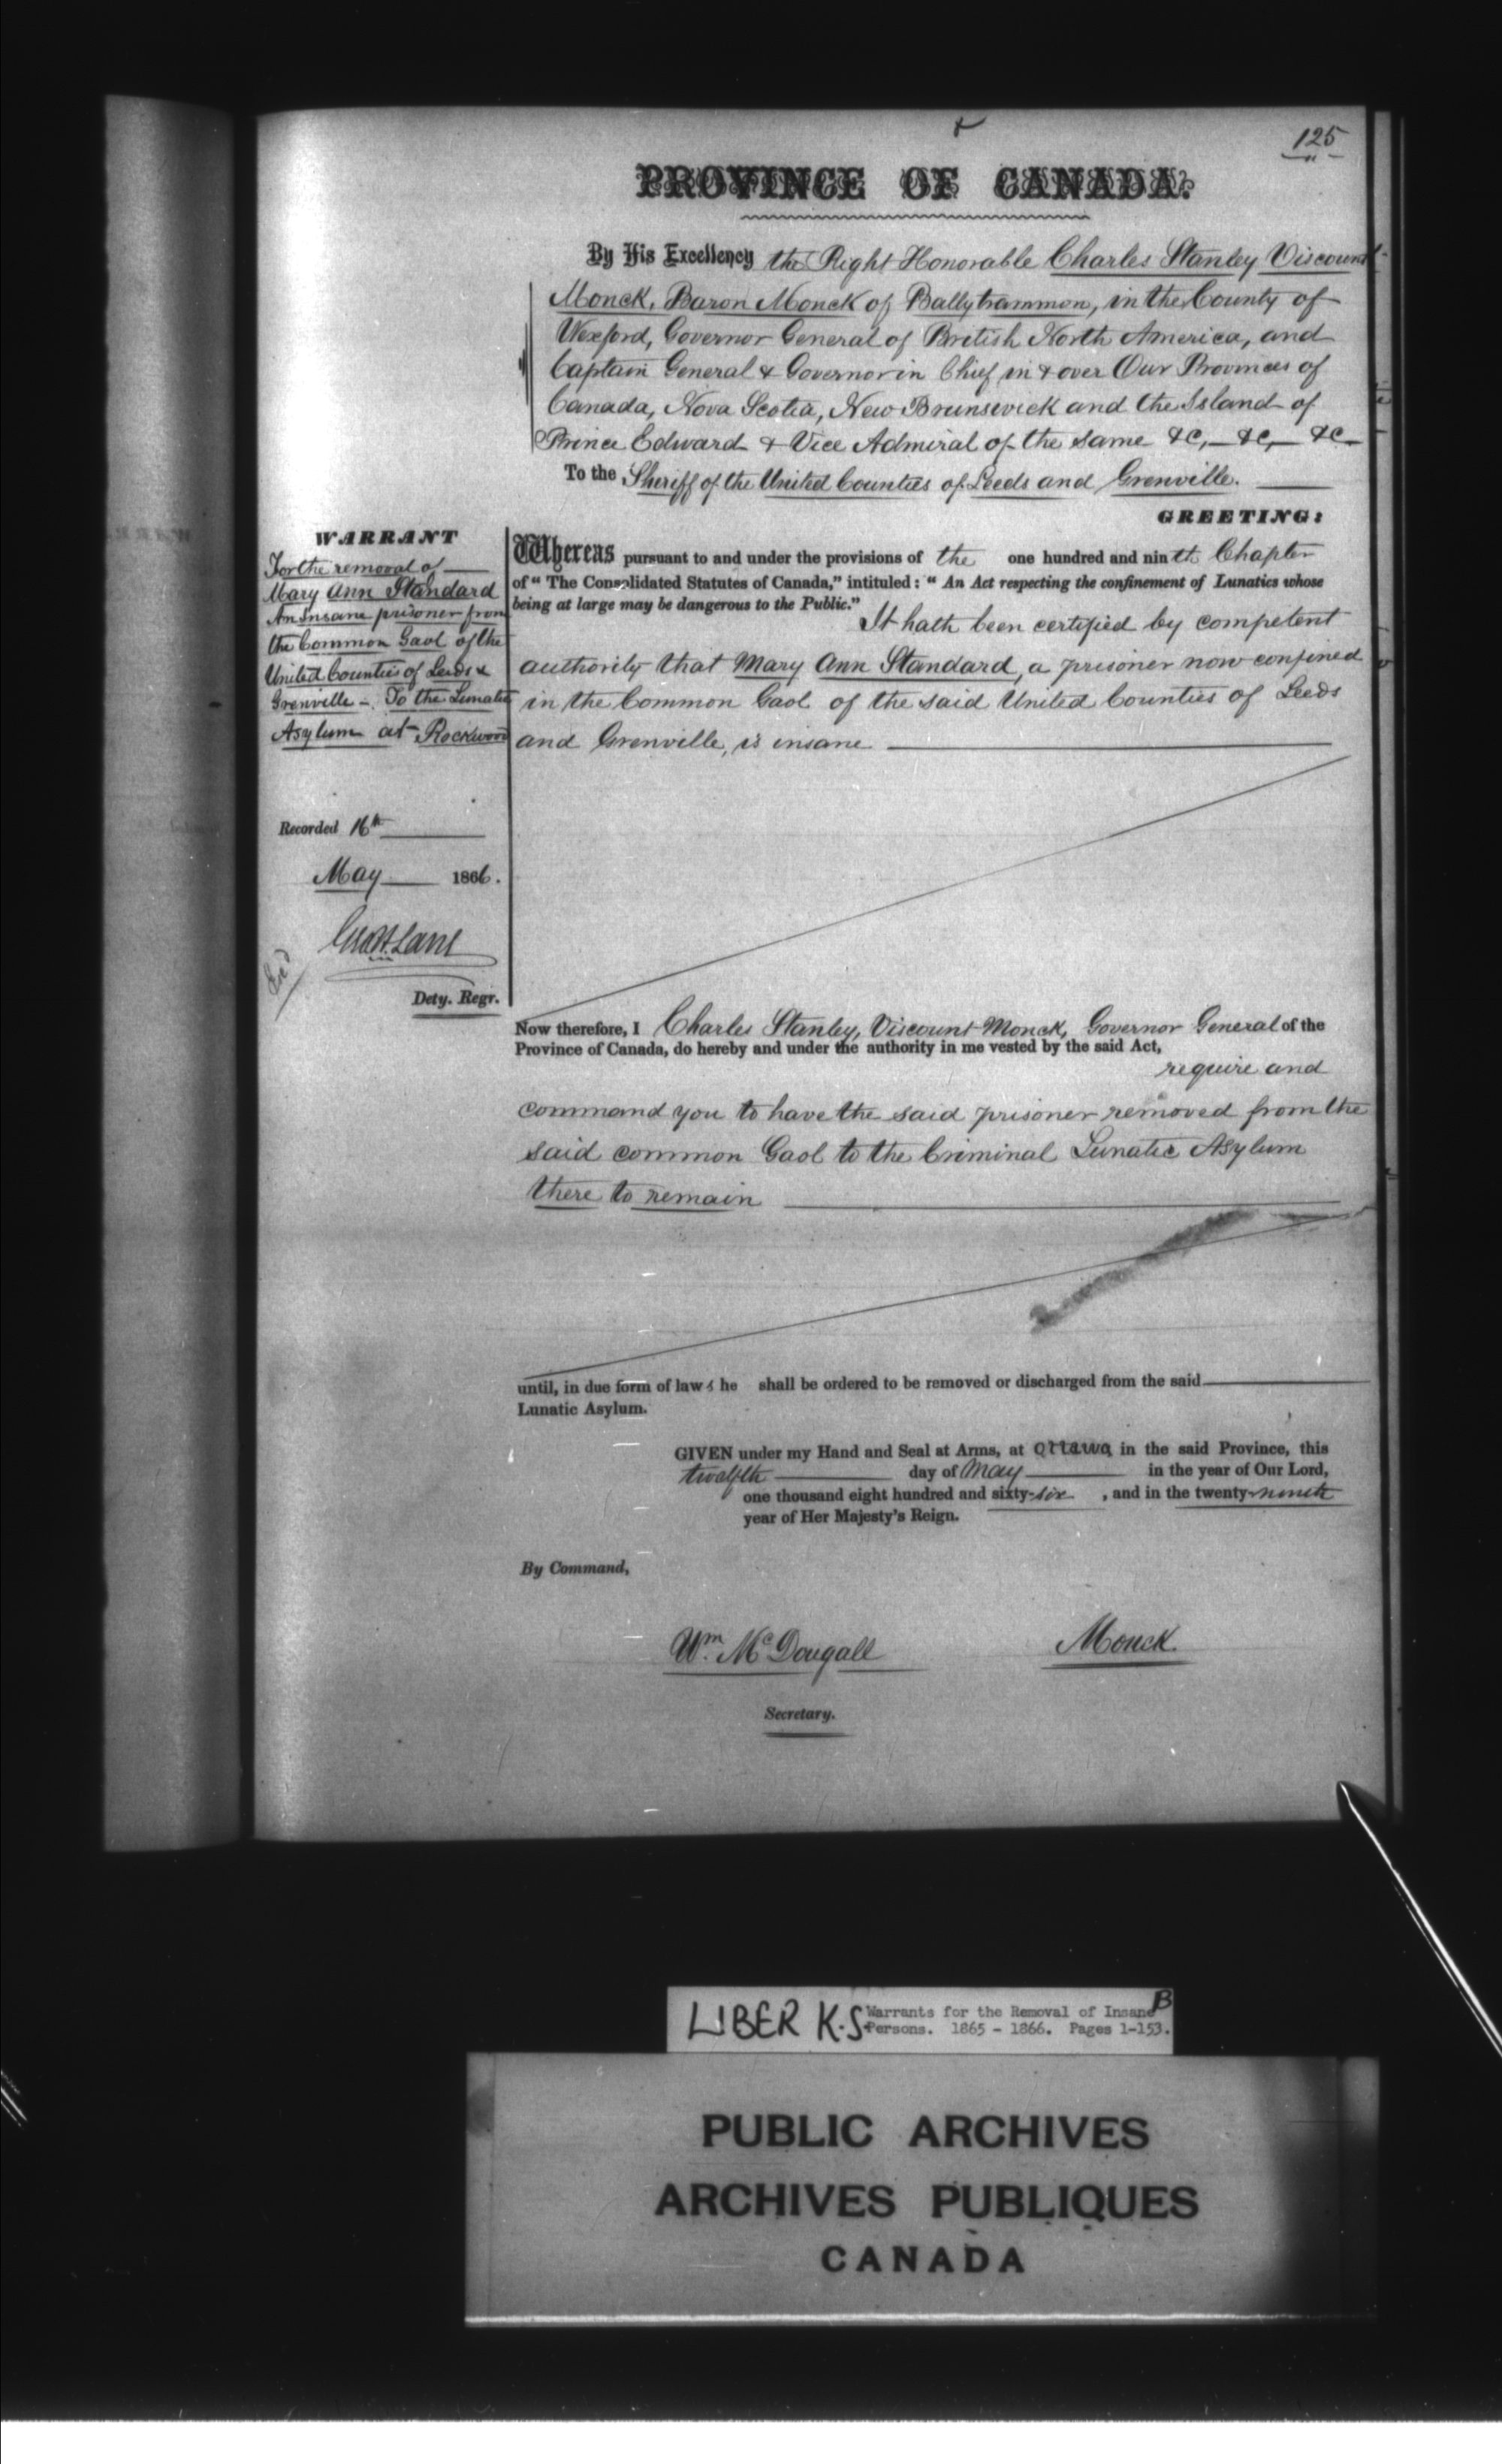 125
PROVINCE OF CANADA.
By His Excellency the Right Honorable Charles Stanley Viscount
Monck, Baron Monck of Ballytrammon, in the County of
Wexford, Governor General of British North America, and
Captain General & Governor in Chief in & over Our Provinces of
Canada, Nova Scotia, New Brunswick and the Island of
Prince Edward & Vice Admiral of the same &c, &c, &c
To the Sheriff of the United Counties of Leeds and Grenville.
GREETING:
WARRANT
For the removal of
Mary Ann Standard
An Insane prisoner from
the Common Gaol of the
United Counties of Leeds &
Grenville - To the Lunatic
Asylum at Rockwood
Recorded 16th
May 1866.
Geo H. Lane
Dety. Regr.
Whereas pursuant to and under the provisions of the one hundred and ninth Chapter
of “ The Consolidated Statutes of Canada,” intituled : “ An Act respecting the confinement of Lunatics whose
being at large may be dangerous to the Public.”
It hath been certified by competent
authority that Mary Ann Standard, a prisoner now confined
in the Common Gaol of the said United Counties of Leeds
and Grenville, is insane
Now therefore, I Charles Stanley, Viscount Monck, Governor General of the
Province of Canada, do hereby and under the authority in me vested by the said Act,
require and
command you to have the said prisoner removed from the
said common Gaol to the Criminal Lunatic Asylum
there to remain
until, in due form of law s he shall be ordered to be removed or discharged from the said
Lunatic Asylum.
GIVEN under my Hand and Seal at Arms, at Ottawa, in the said Province, this
twelfth day of May in the year of Our Lord,
one thousand eight hundred and sixty-six , and in the twenty-ninth
year of Her Majesty's Reign.
By Command,
Wm. McDougall
Monck.
Secretary.
LIBER K.S. Warrants for the Removal of Insane B
Persons. 1865 - 1866. Pages 1-153.
PUBLIC ARCHIVES
ARCHIVES PUBLIQUES
CANADA